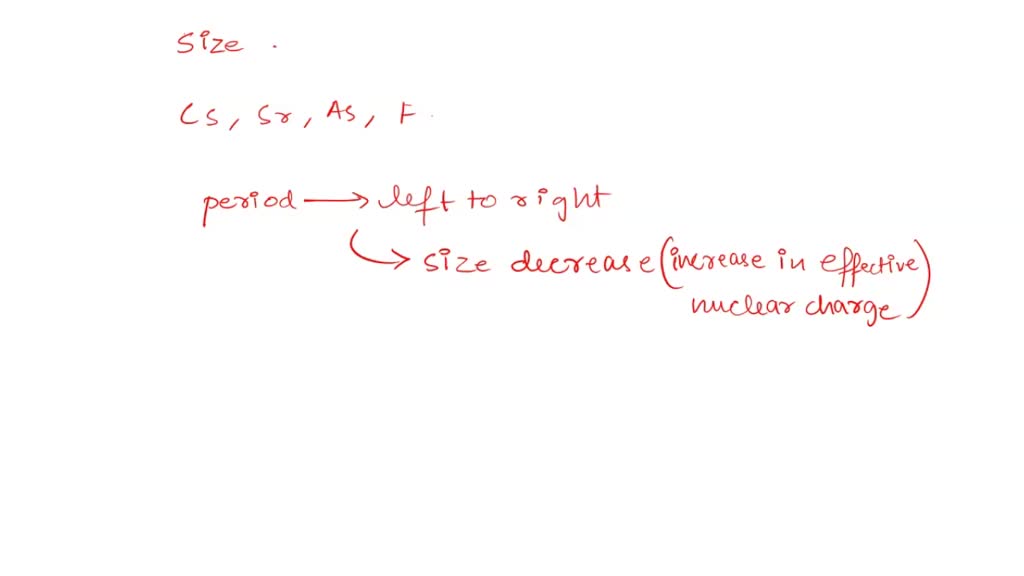 Size .
Cs, Sr, As, F .
period → left to right
↳ size decrease (increase in effective
nuclear charge)